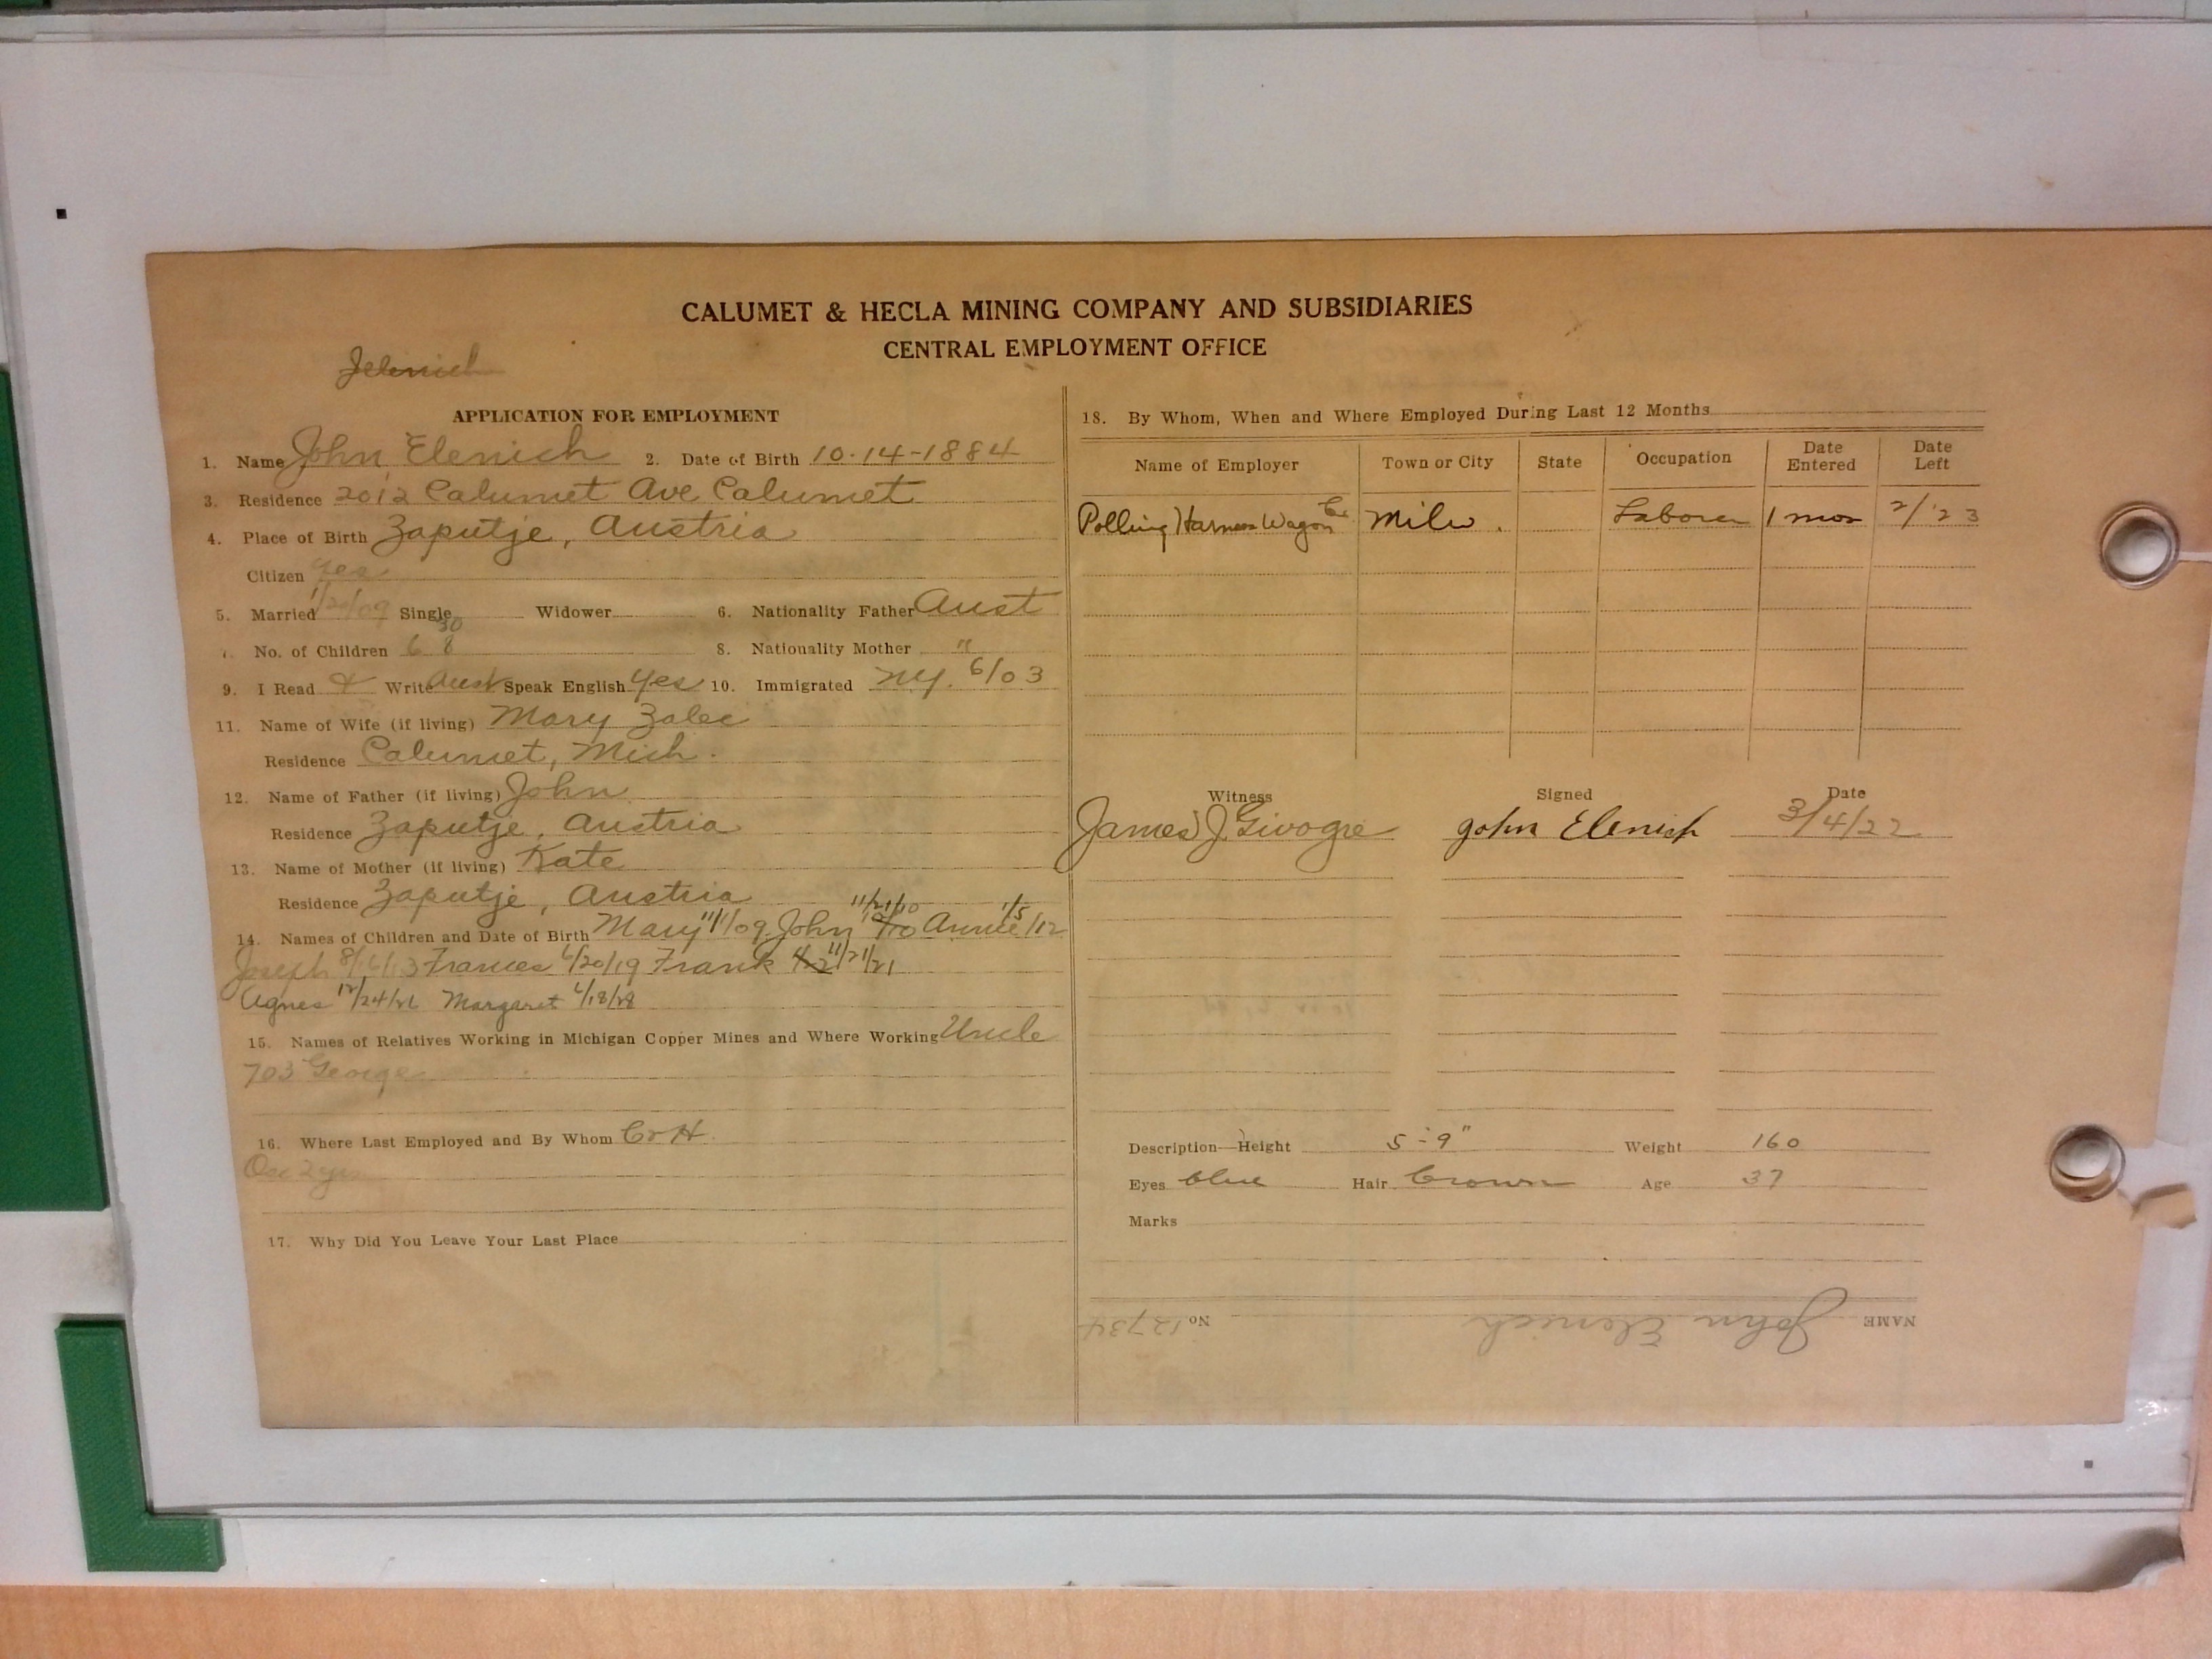 CALUMET & HECLA MINING COMPANY AND SUBSIDIARIES
CENTRAL EMPLOYMENT OFFICE
Jelenich
APPLICATION FOR EMPLOYMENT
1. Name John Elenich 2. Date of Birth 10-14-1884
3. Residence 2012 Calumet Ave Calumet
4. Place of Birth Zaputje, Austria
Citizen Yes
5. Married 1/20/09 Single Widower 6. Nationality Father Aust
30
No. of Children 6 8 8. Nationality Mother "
9. I Read & Write Aust Speak English Yes 10. Immigrated N.Y. 6/03
11. Name of Wife (if living) Mary Zalec
Residence Calumet, Mich.
12. Name of Father (if living) John
Residence Zaputje, Austria
13. Name of Mother (if living) Kate
Residence Zaputje, Austria
14. Names of Children and Date of Birth Mary 11/1/09 John 11/21/10 Annie 1/5/12
Joseph 8/6/13 Frances 6/20/19 Frank 11/21/21
Agnes 12/24/26 Margaret 6/18/28
15. Names of Relatives Working in Michigan Copper Mines and Where Working Uncle
703 George
16. Where Last Employed and By Whom C & H
Occ 2 yrs
17. Why Did You Leave Your Last Place
18. By Whom, When and Where Employed During Last 12 Months
Name of Employer Town or City State Occupation Date Entered Date Left
Polling Harness Wagon Co Milw. Laborer 1 mos 2/'23
Witness Signed Date
James J. Givogre John Elenich 3/4/22
Description—Height 5-9" Weight 160
Eyes blue Hair brown Age 37
Marks
NAME John Elenich No. 12734